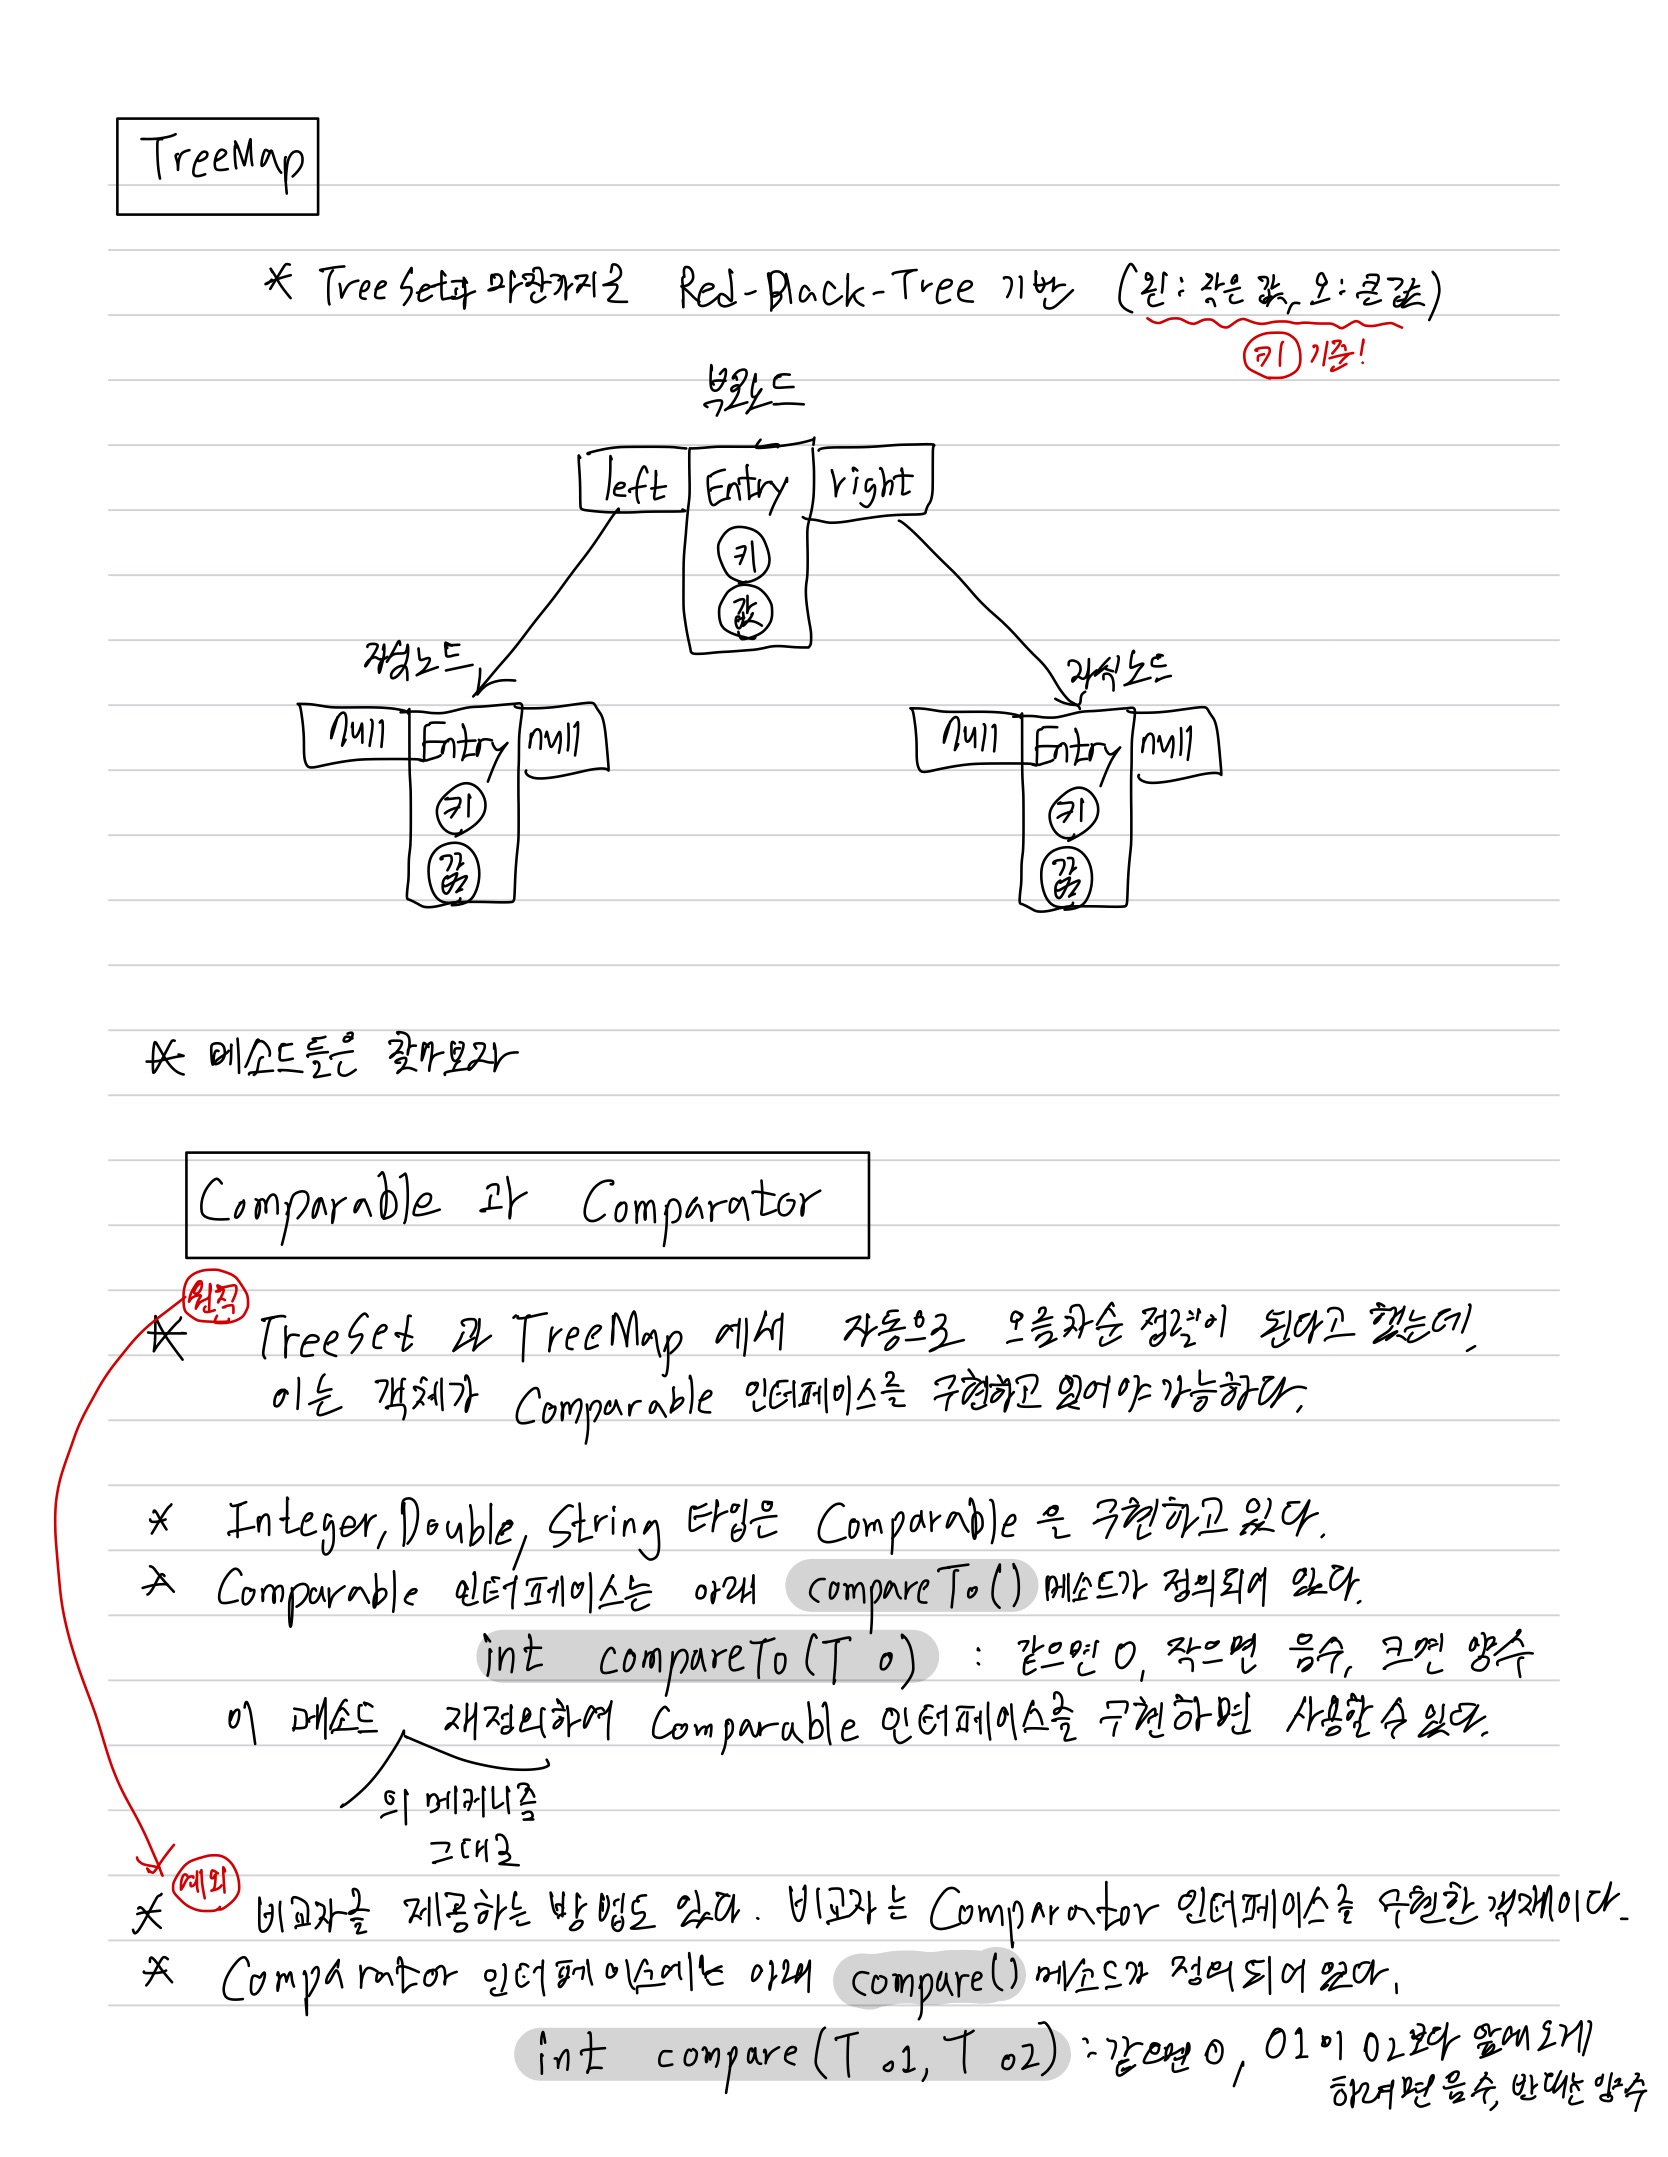 TreeMap
* TreeSet과 마찬가지로 Red-Black-Tree 기반 (왼: 작은 값, 오: 큰 값)
키 기준!
부모노드
left Entry right
키
값
자식노드 자식노드
null Entry null null Entry null
키 키
값 값
* 메소드들은 찾아보자
Comparable 과 Comparator
원칙
* TreeSet 과 TreeMap 에서 자동으로 오름차순 정렬이 된다고 했는데,
이는 객체가 Comparable 인터페이스를 구현하고 있어야 가능하다.
* Integer, Double, String 타입은 Comparable 을 구현하고 있다.
* Comparable 인터페이스는 아래 compareTo() 메소드가 정의되어 있다.
int compareTo(T o) : 같으면 0, 작으면 음수, 크면 양수
이 메소드 재정의하여 Comparable 인터페이스를 구현하면 사용할 수 있다.
의 메커니즘
그대로
예외
* 비교자를 제공하는 방법도 있다. 비교자는 Comparator 인터페이스를 구현한 객체이다.
* Comparator 인터페이스에는 아래 compare() 메소드가 정의되어 있다.
int compare(T o1, T o2) : 같으면 0, o1이 o2보다 앞에 오게
하려면 음수, 반대는 양수